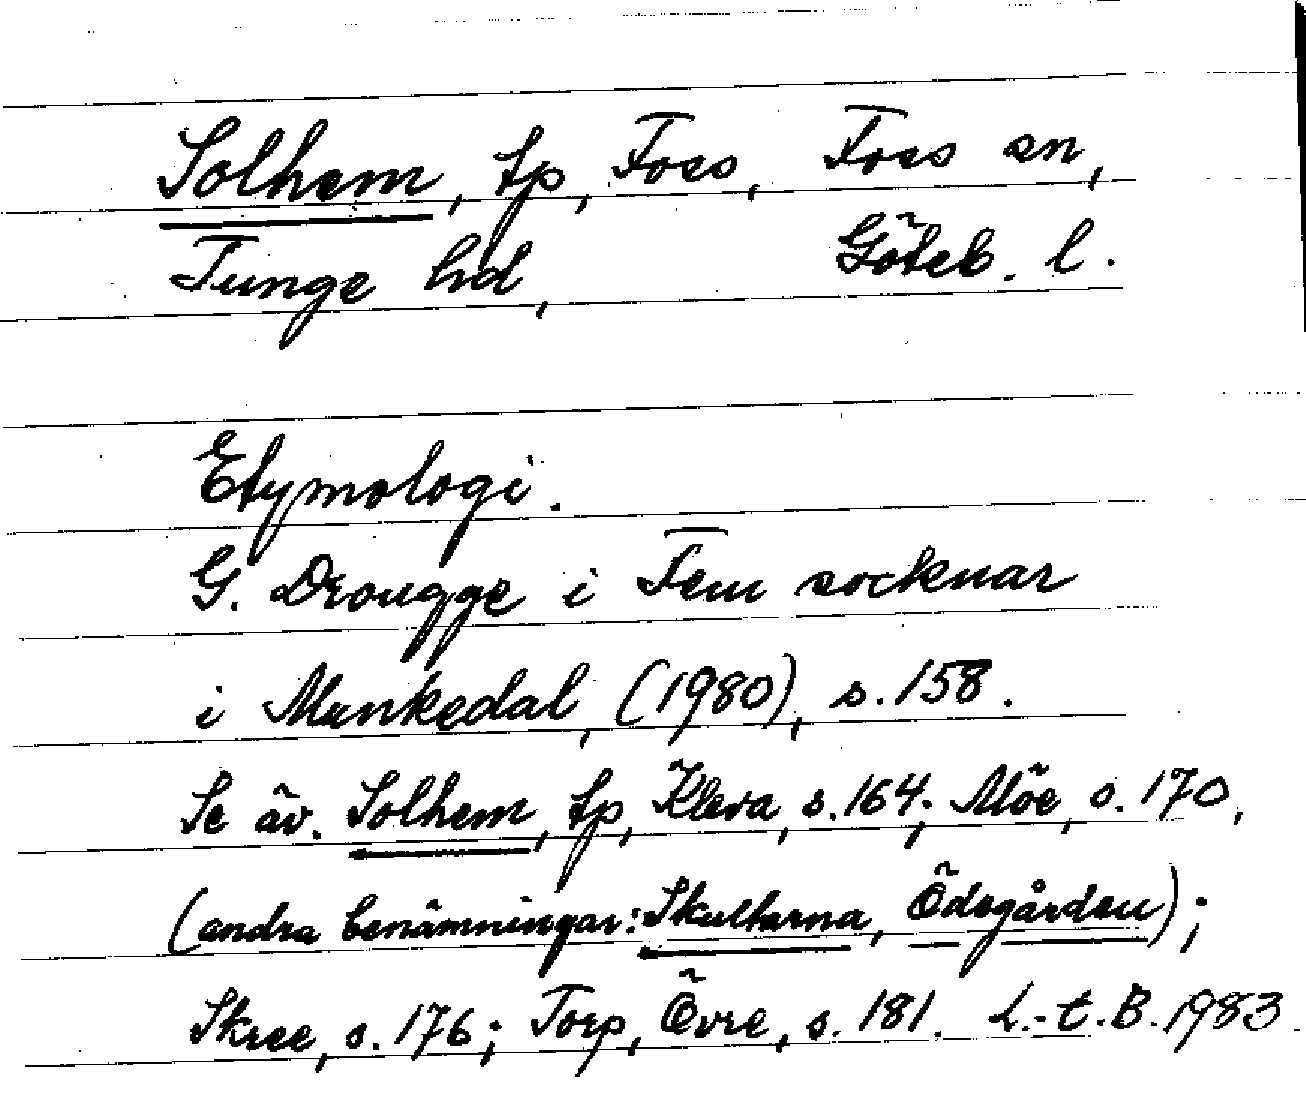 Solhem, tp, Foss, Foss sn,
Tunge hd, Göteb. l.
Etymologi.
G. Drougge i Fem socknar
i Munkedal, (1980), s. 158.
Se äv. Solhem, tp, Kleva, s. 164; Möe, s. 170,
(andra benämningar: Skultarna, Ödegården);
Skree, s. 176; Torp, Övre, s. 181. L.-t. B. 1983